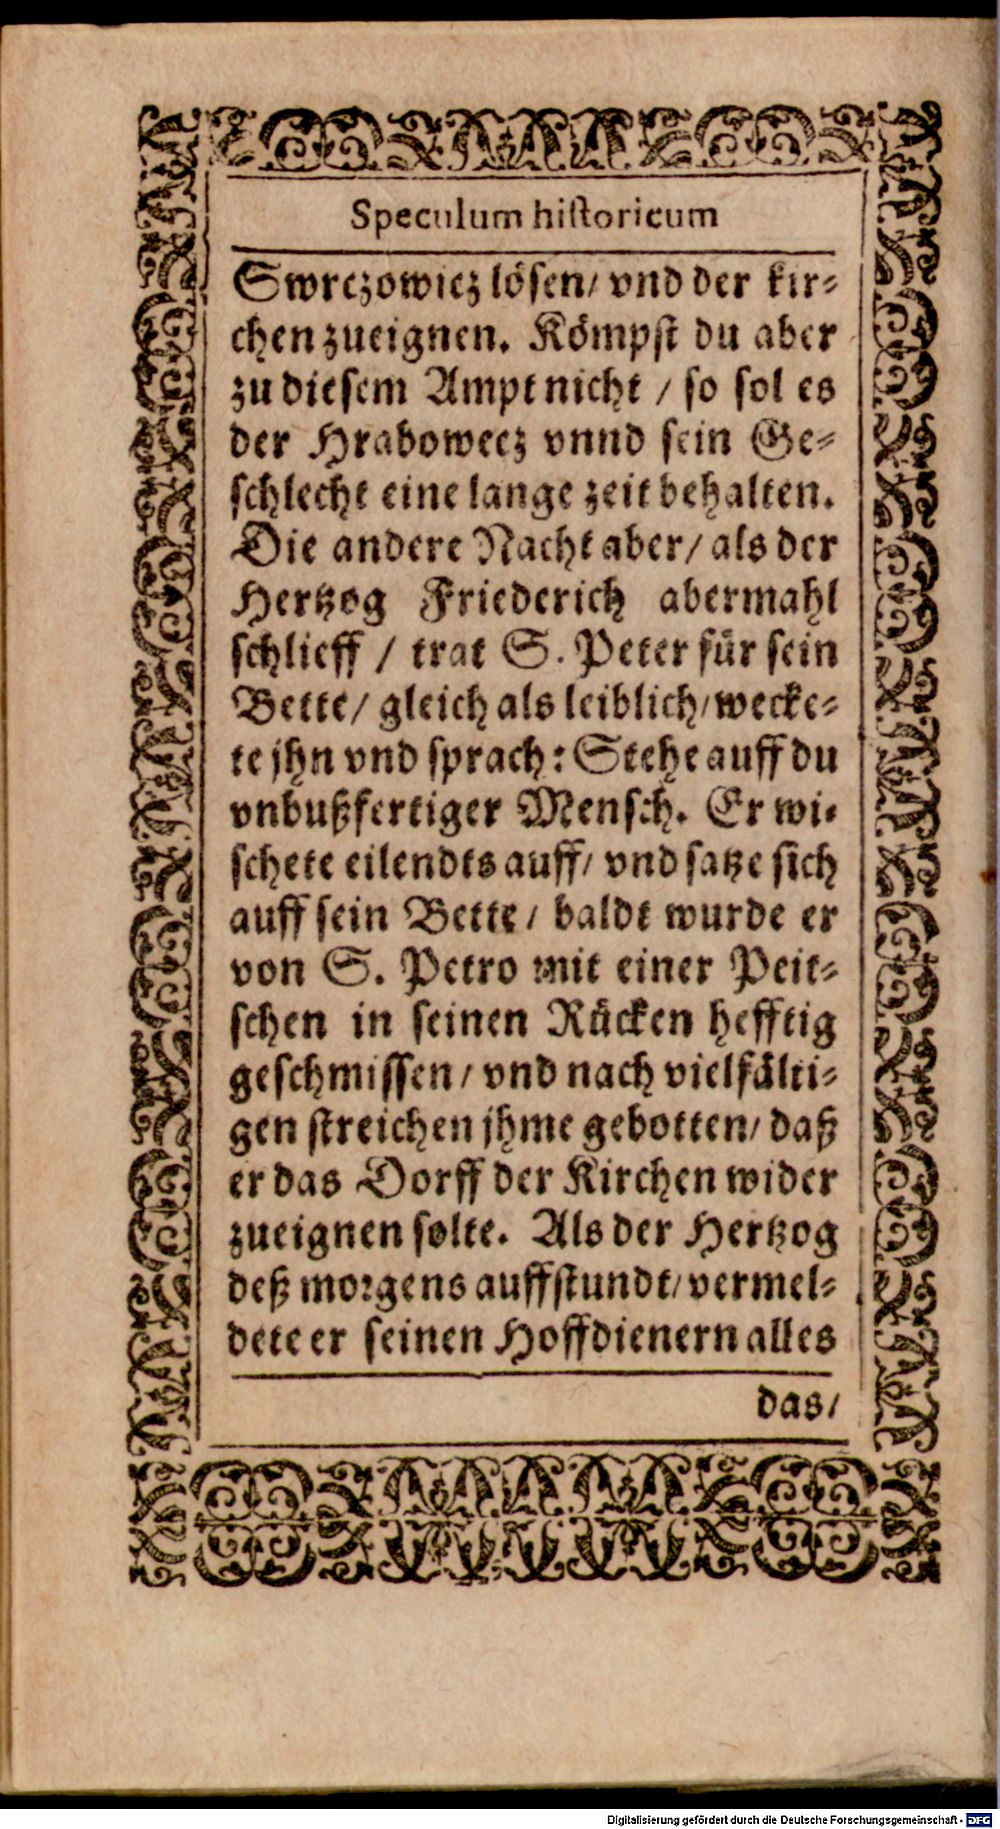 Speculum historicum
Swrczowicz lösen/ vnd der kir-
chen zueignen. Kömpst du aber
zu diesem Ampt nicht / so sol es
der Hrabowecz vnnd sein Ge-
schlecht eine lange zeit behalten.
Die andere Nacht aber/ als der
Hertzog Friederich abermahl
schlieff / trat S. Peter für sein
Bette/ gleich als leiblich/ wecke-
te jhn vnd sprach: Stehe auff du
vnbußfertiger Mensch. Er wi-
schete eilendts auff/ vnd satze sich
auff sein Bette/ baldt wurde er
von S. Petro mit einer Peit-
schen in seinen Rücken hefftig
geschmissen/ vnd nach vielfälti-
gen streichen jhme gebotten/ daß
er das Dorff der Kirchen wider
zueignen solte. Als der Hertzog
deß morgens auffstundt/ vermel-
dete er seinen Hoffdienern alles
das/
Digitalisierung gefördert durch die Deutsche Forschungsgemeinschaft - DFG